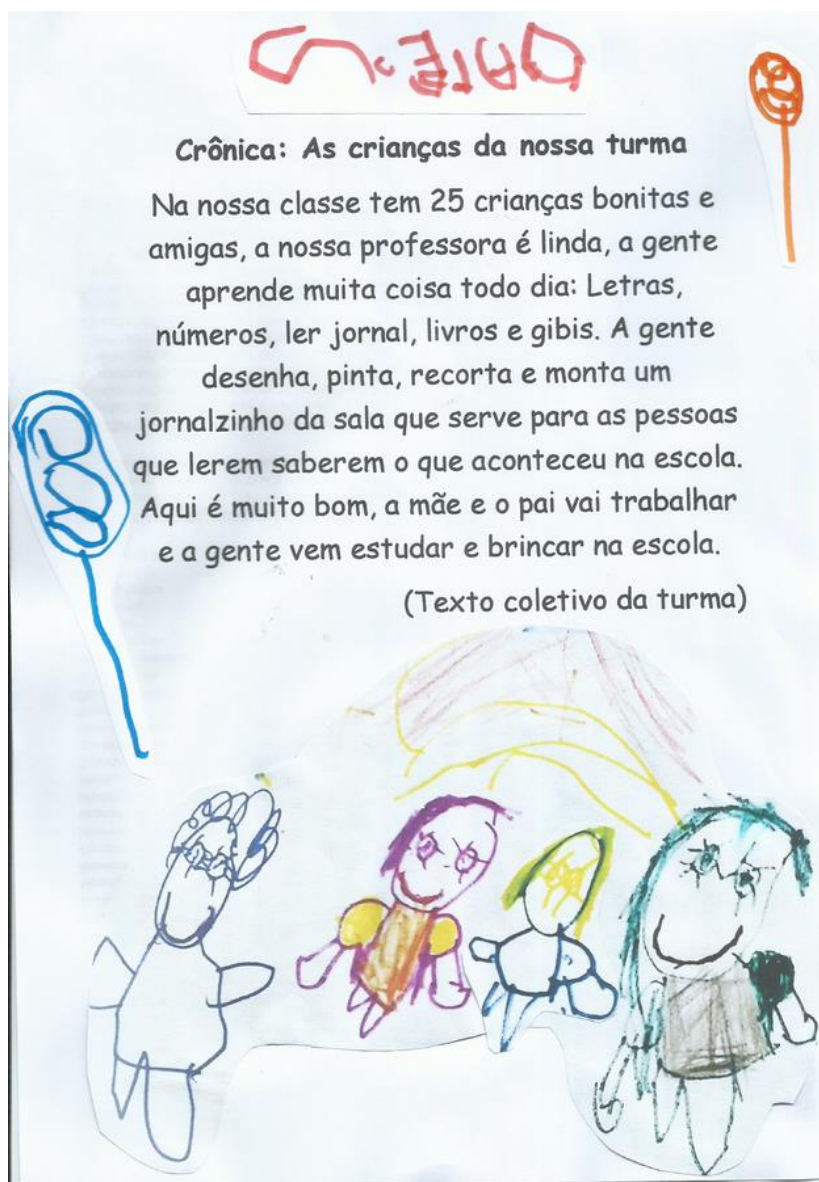 Crônica: As crianças da nossa turma
Na nossa classe tem 25 crianças bonitas e
amigas, a nossa professora é linda, a gente
aprende muita coisa todo dia: Letras,
números, ler jornal, livros e gibis. A gente
desenha, pinta, recorta e monta um
jornalzinho da sala que serve para as pessoas
que lerem saberem o que aconteceu na escola.
Aqui é muito bom, a mãe e o pai vai trabalhar
e a gente vem estudar e brincar na escola.
(Texto coletivo da turma)